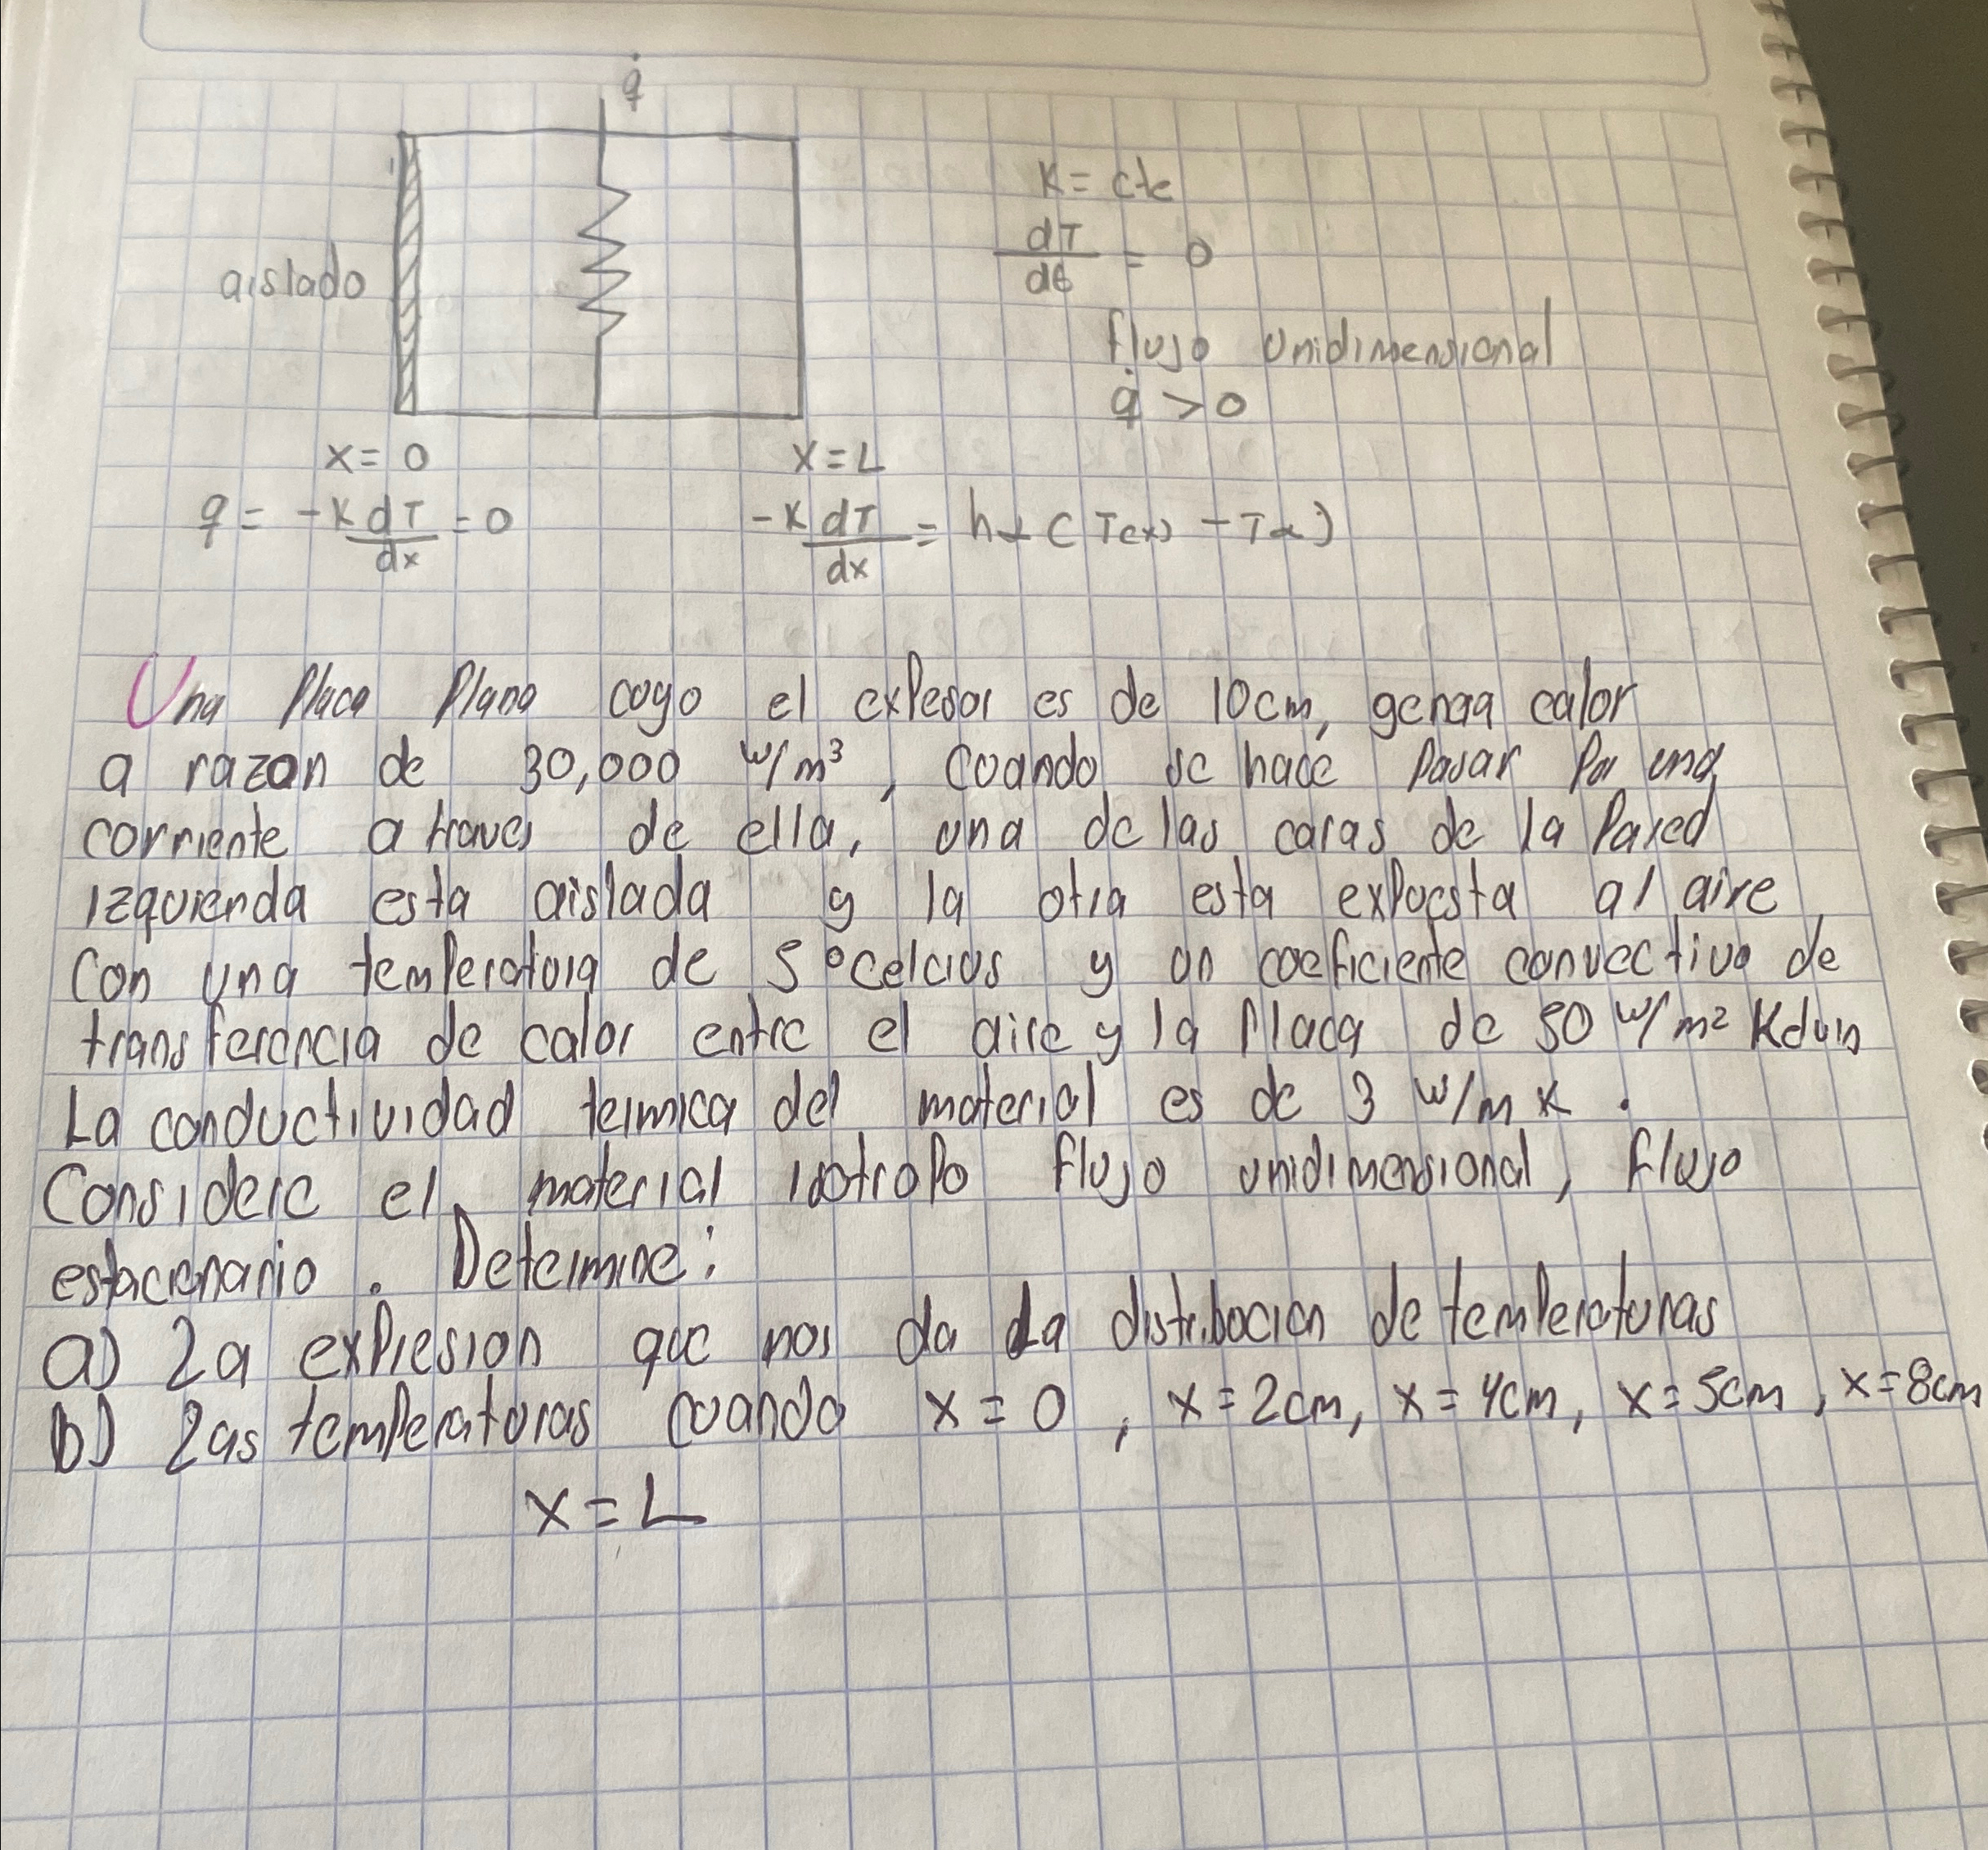 q̇
K = cte
dT/dθ = 0
aislado
flujo unidimensional
q̇ > 0
x = 0
x = L
q = -K dT/dx = 0
-K dT/dx = h (T(x) - Tα)
Una Placa Plana cuyo el expesor es de 10cm, genera calor
a razon de 30,000 W/m³, Cuando se hace Pasar Por una
corriente a traves de ella, una de las caras de la Pared
izquierda esta aislada y la otra esta expuesta al aire
Con una temperatura de 5°celcius y un coeficiente convectivo de
transferencia de calor entre el aire y la Placa de 50 W/m² Kelvin
La conductividad termica del material es de 3 W/m K.
Considere el material isotropo flujo unidimensional, flujo
estacionario. Determine:
a) La expresion que nos da La distribucion de temperaturas
b) Las temperaturas cuando x=0, x=2cm, x=4cm, x=5cm, x=8cm
x=L